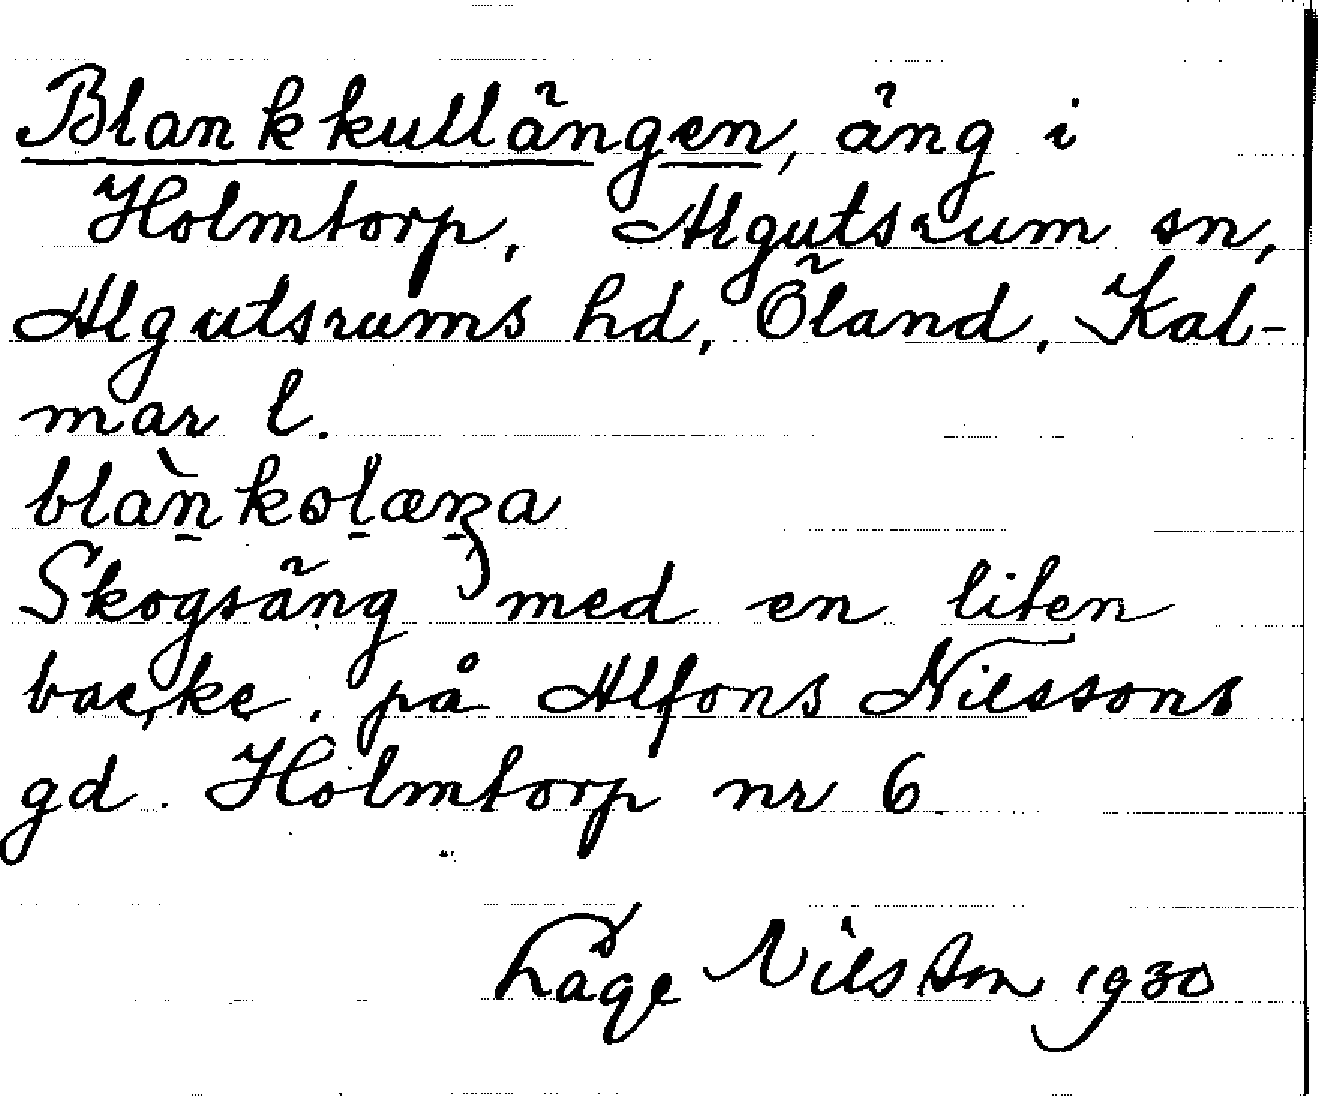 Blankkullängen, äng i
Holmtorp, Algutsrum sn,
Algutsrums hd, Öland, Kal-
mar l.
blàn̠kol̠æn̠a
Skogsäng med en liten
backe, på Alfons Nilssons
gd. Holmtorp nr 6
Låge Nilsson 1930